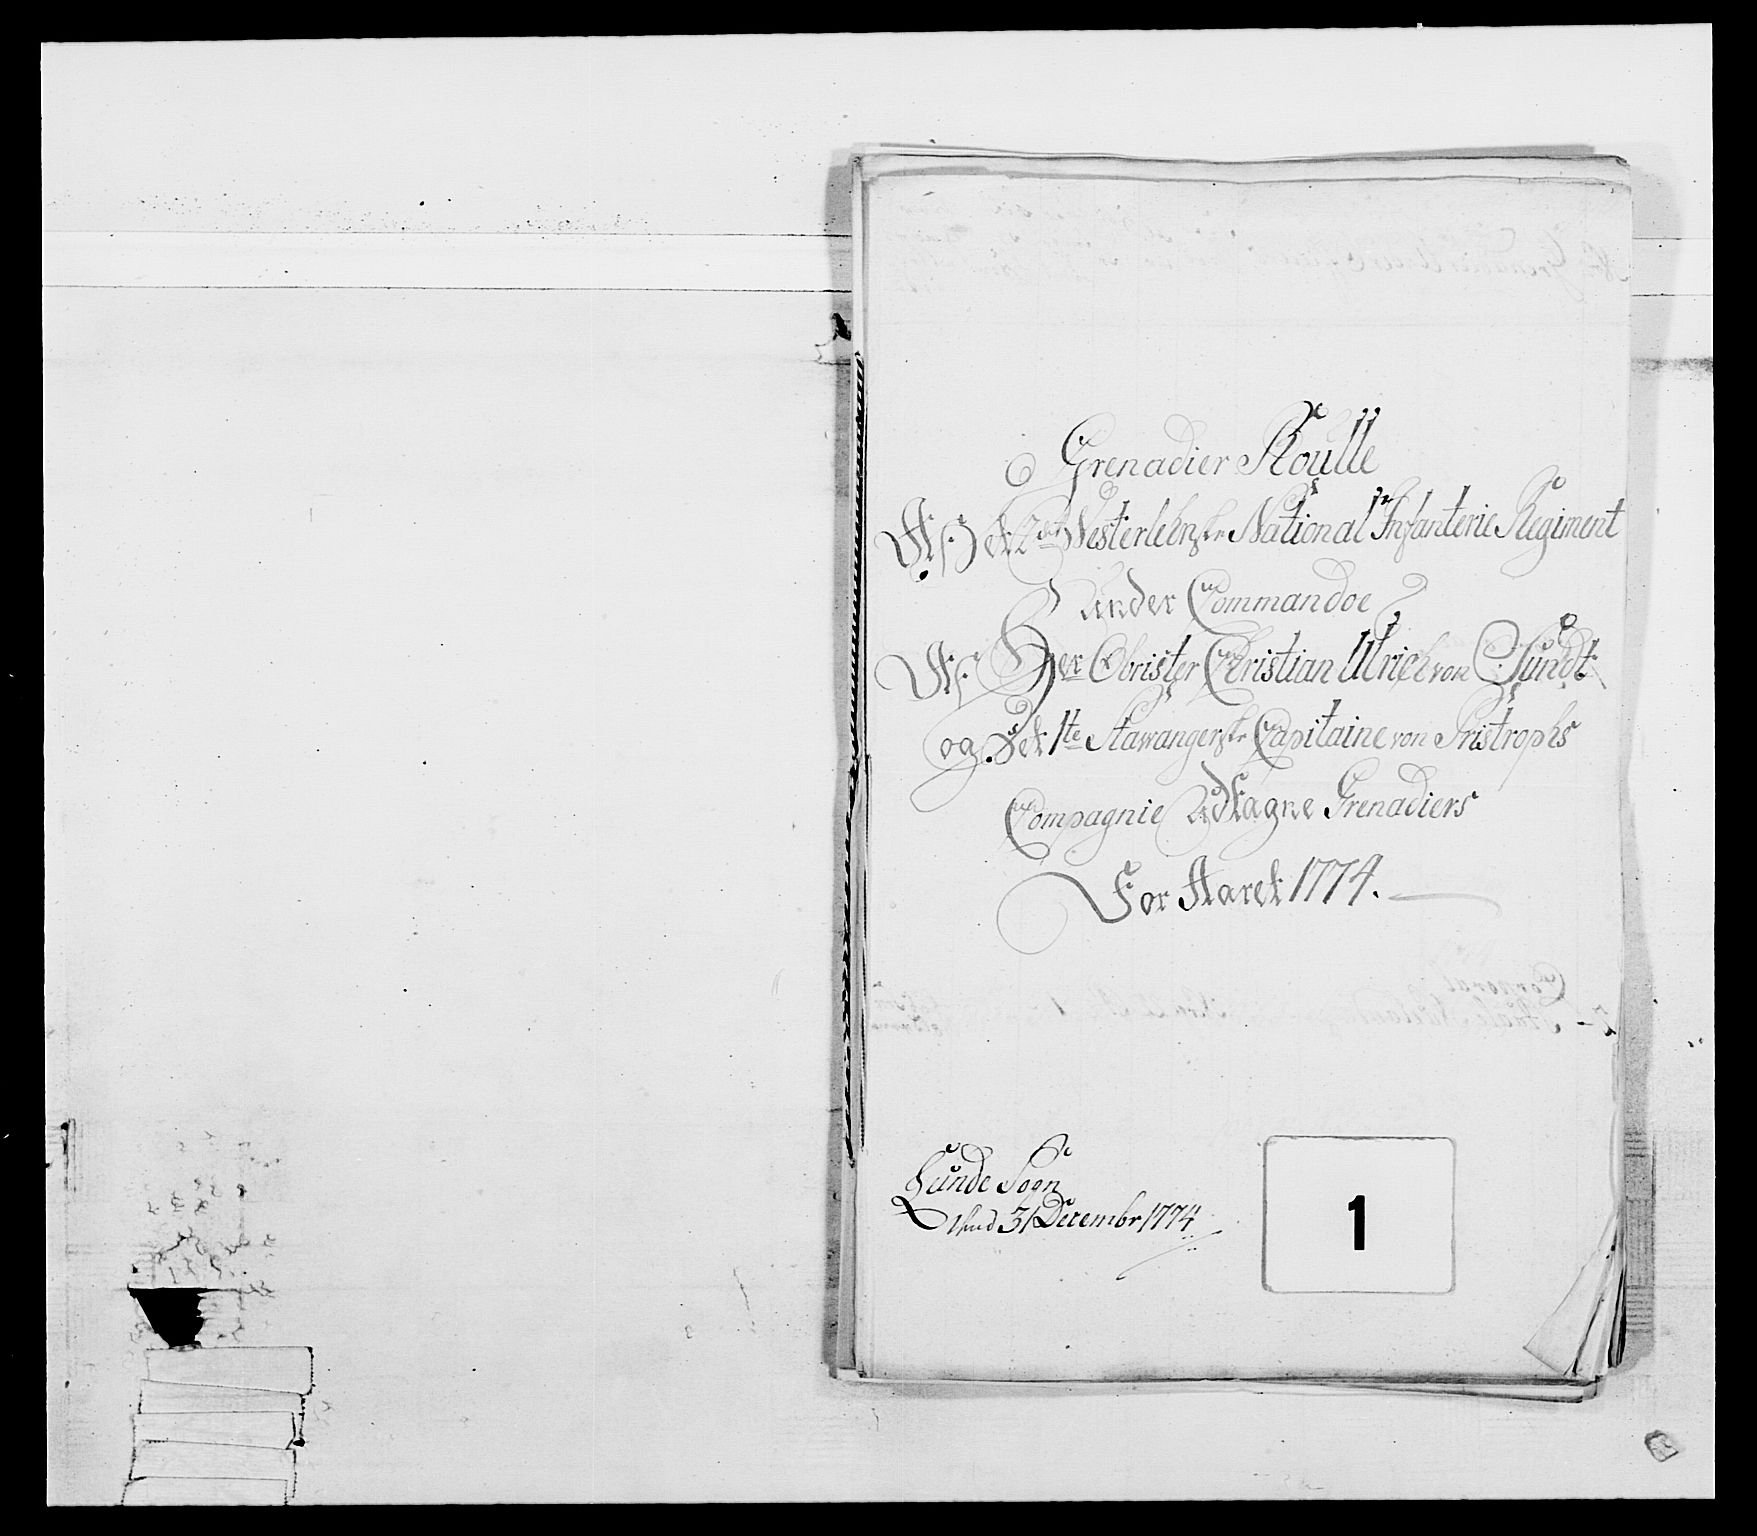 Grenadier Roulle
Af Det 2det Westerlehnske National Infanterie Regiment
Under Commandoe
Af Her Obrister Christian Ulrich von Sundt
og Det 1te Stawangerske Capitaine von Fristrophs
Compagnie Udtagne Grenadiers
For Aaret 1774.
Lunde Sogn
d 31 Decembr 1774
1